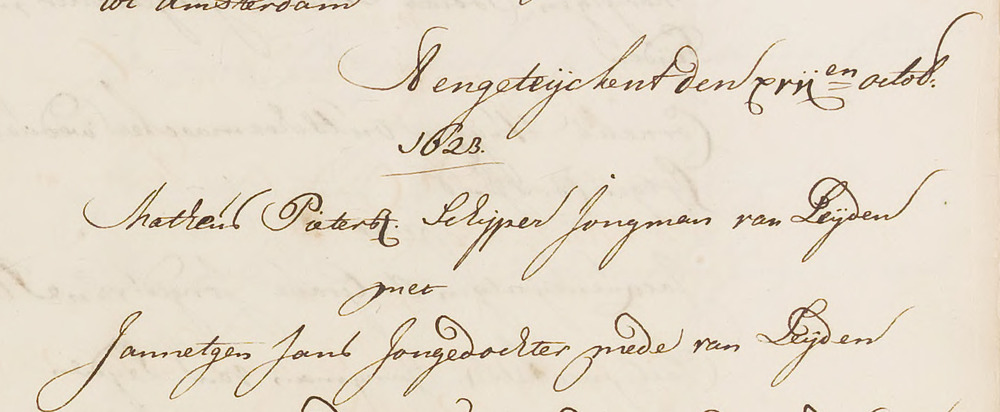 tot Amsterdam
Aengeteijckent den xxijen octob.
1623.
Matheus Pieters. Schipper Jongman van Leijden
met
Jannetgen Jans Jongedochter mede van Leijden